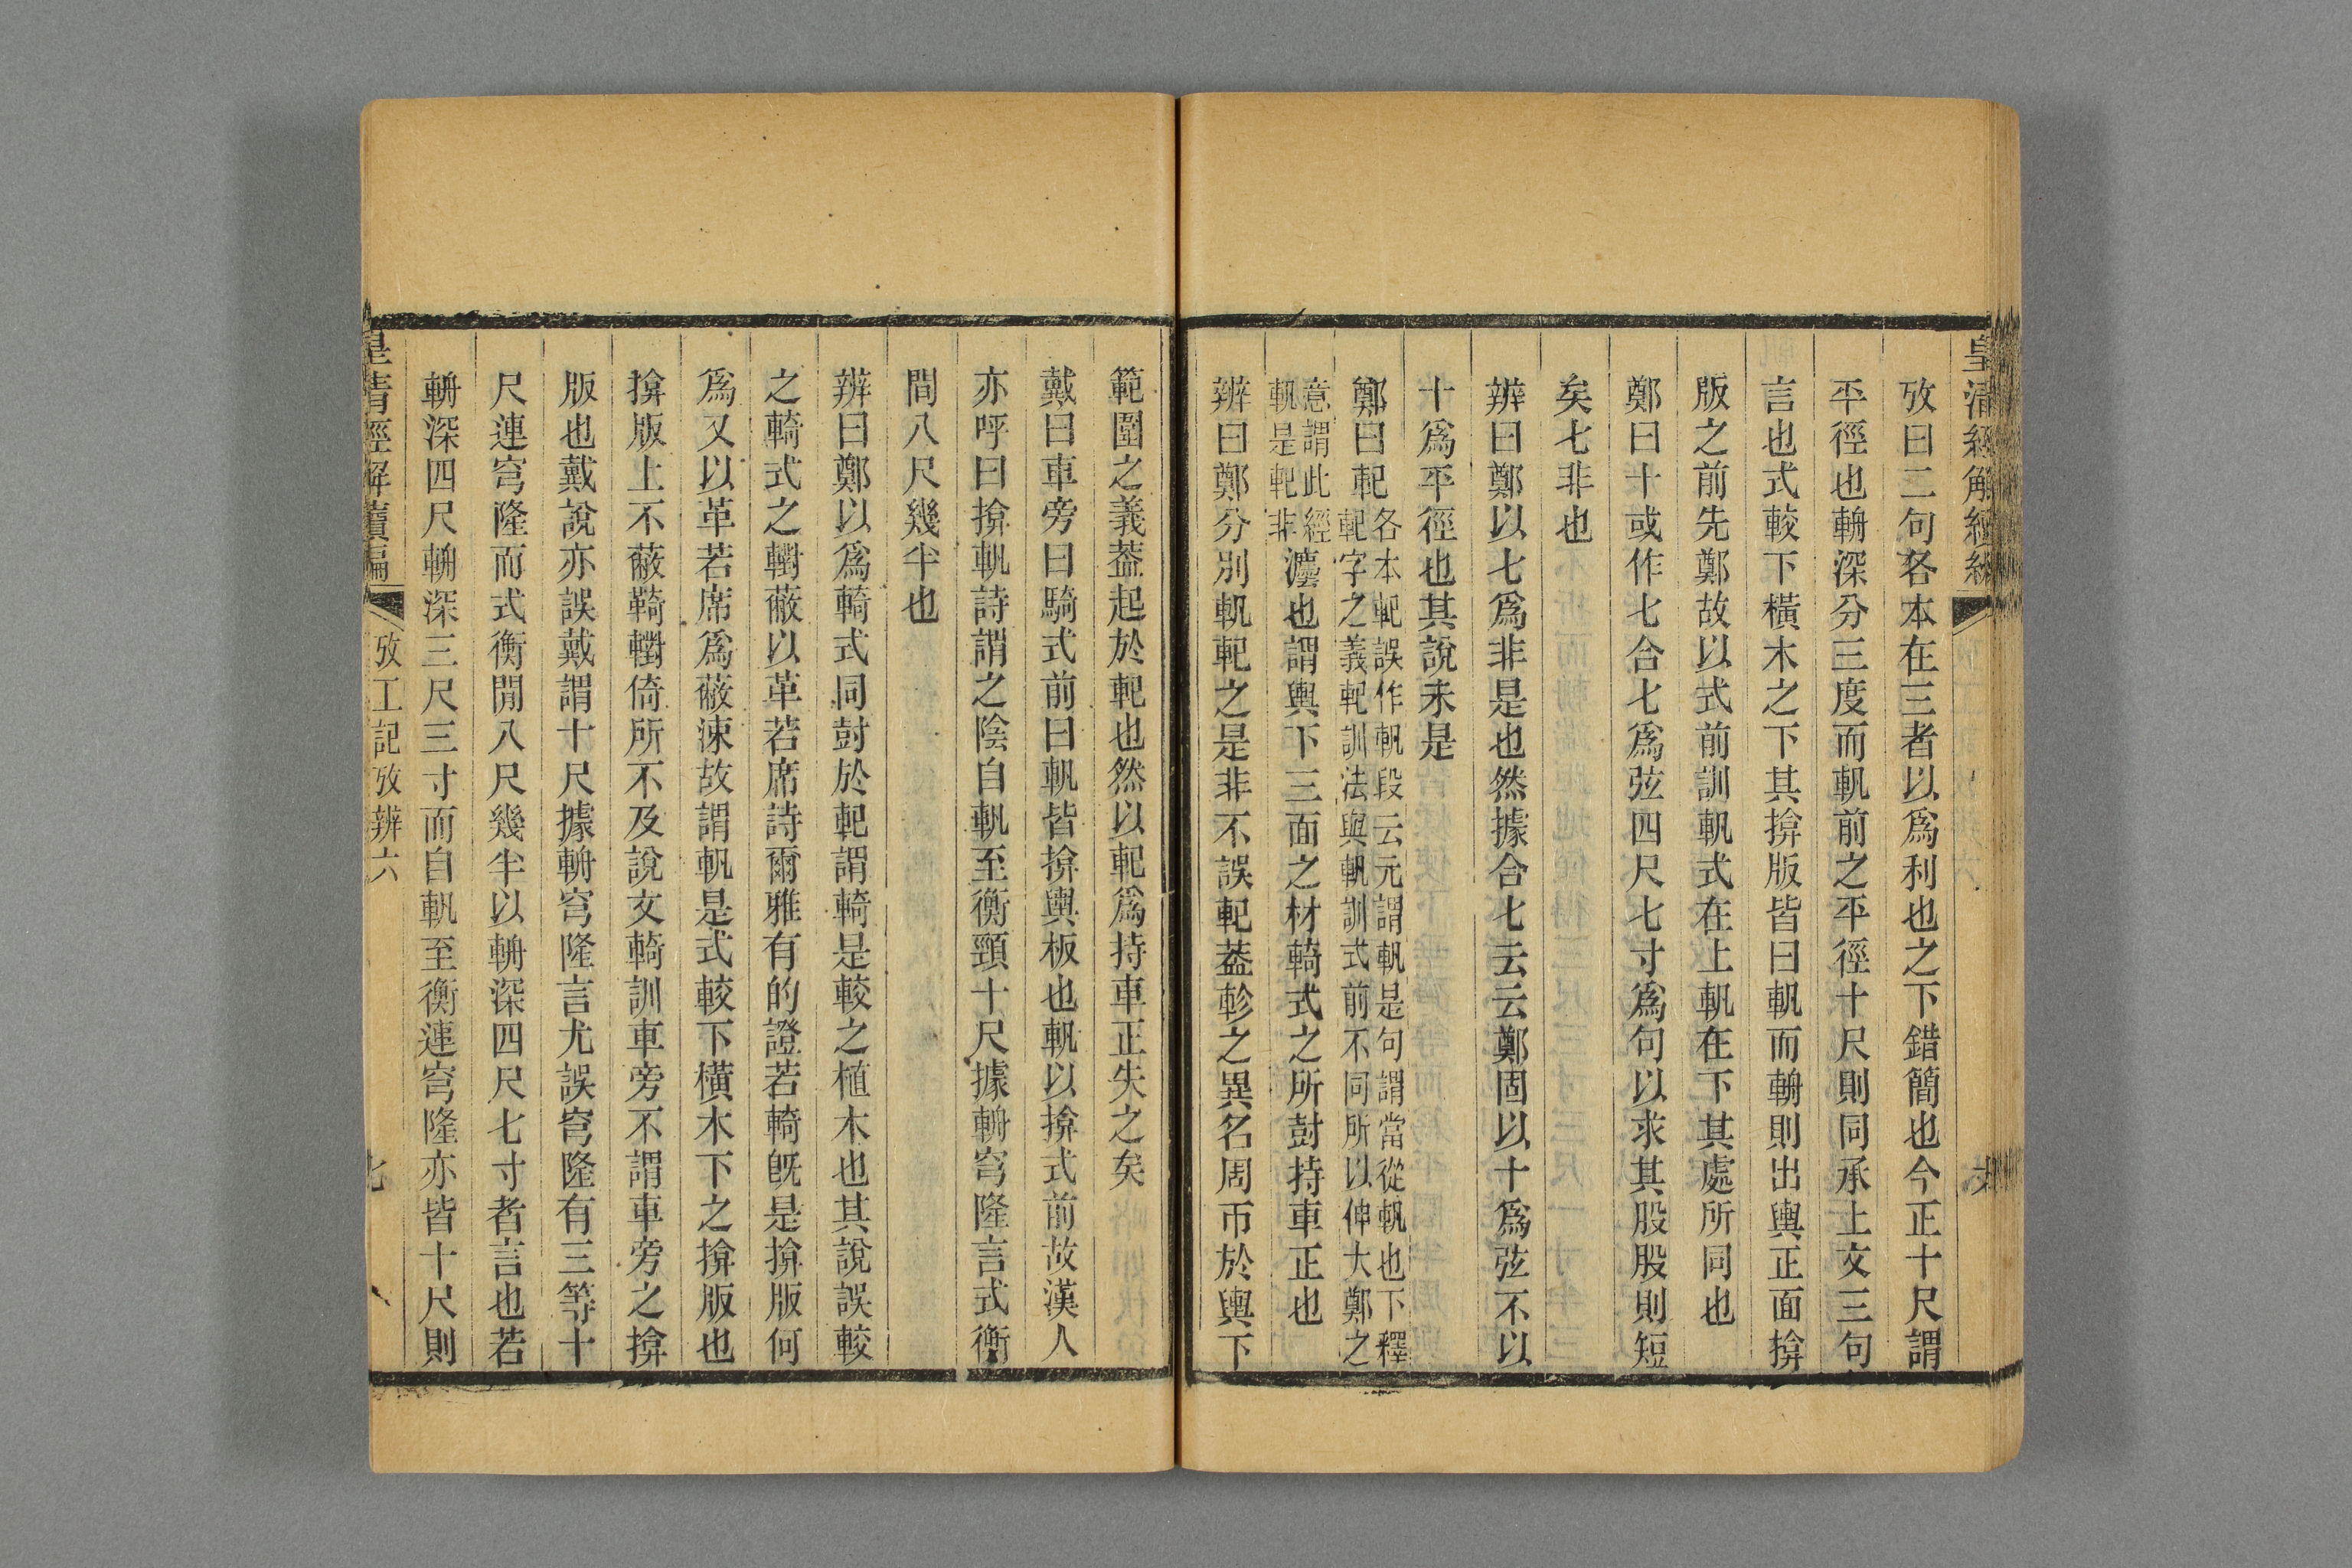 皇清經解續編
攷曰二句各本在三者以爲利也之下錯簡也今正十尺謂
平徑也輈深分三度而軓前之平徑十尺則同承上文三句
言也式較下橫木之下其揜版皆曰軓而輈則出輿正面揜
版之前先鄭故以式前訓軓式在上軓在下其處所同也
鄭曰十或作七合七爲弦四尺七寸爲句以求其股股則短
矣七非也
辨曰鄭以七爲非是也然據合七云云鄭固以十爲弦不以
十爲平徑也其說未是
鄭曰軓各本軓誤作軓段云元謂軓是句謂當從軓也下釋
軓字之義軓訓法與軓訓式前不同所以伸大鄭之
意謂此經
軓是軓非灋也謂輿下三面之材輢式之所尌持車正也
辨曰鄭分別軓軓之是非不誤軓葢軫之異名周帀於輿下
範圍之義葢起於軓也然以軓爲持車正失之矣
戴曰車旁曰騎式前曰軓皆揜輿板也軓以揜式前故漢人
亦呼曰揜軓詩謂之陰自軓至衡頸十尺據輈穹隆言式衡
間八尺幾半也
辨曰鄭以爲輢式同尌於軓謂輢是較之植木也其說誤較
之輢式之轛蔽以革若席詩爾雅有的證若輢旣是揜版何
爲又以革若席爲蔽涑故謂軓是式較下橫木下之揜版也
揜版上不蔽輢轛倚所不及說文輢訓車旁不謂車旁之揜
版也戴說亦誤戴謂十尺據輈穹隆言尤誤穹隆有三等十
尺連穹隆而式衡閒八尺幾半以輈深四尺七寸者言也若
輈深四尺輈深三尺三寸而自軓至衡連穹隆亦皆十尺則
皇清經解續編
攷工記攷辨六
七